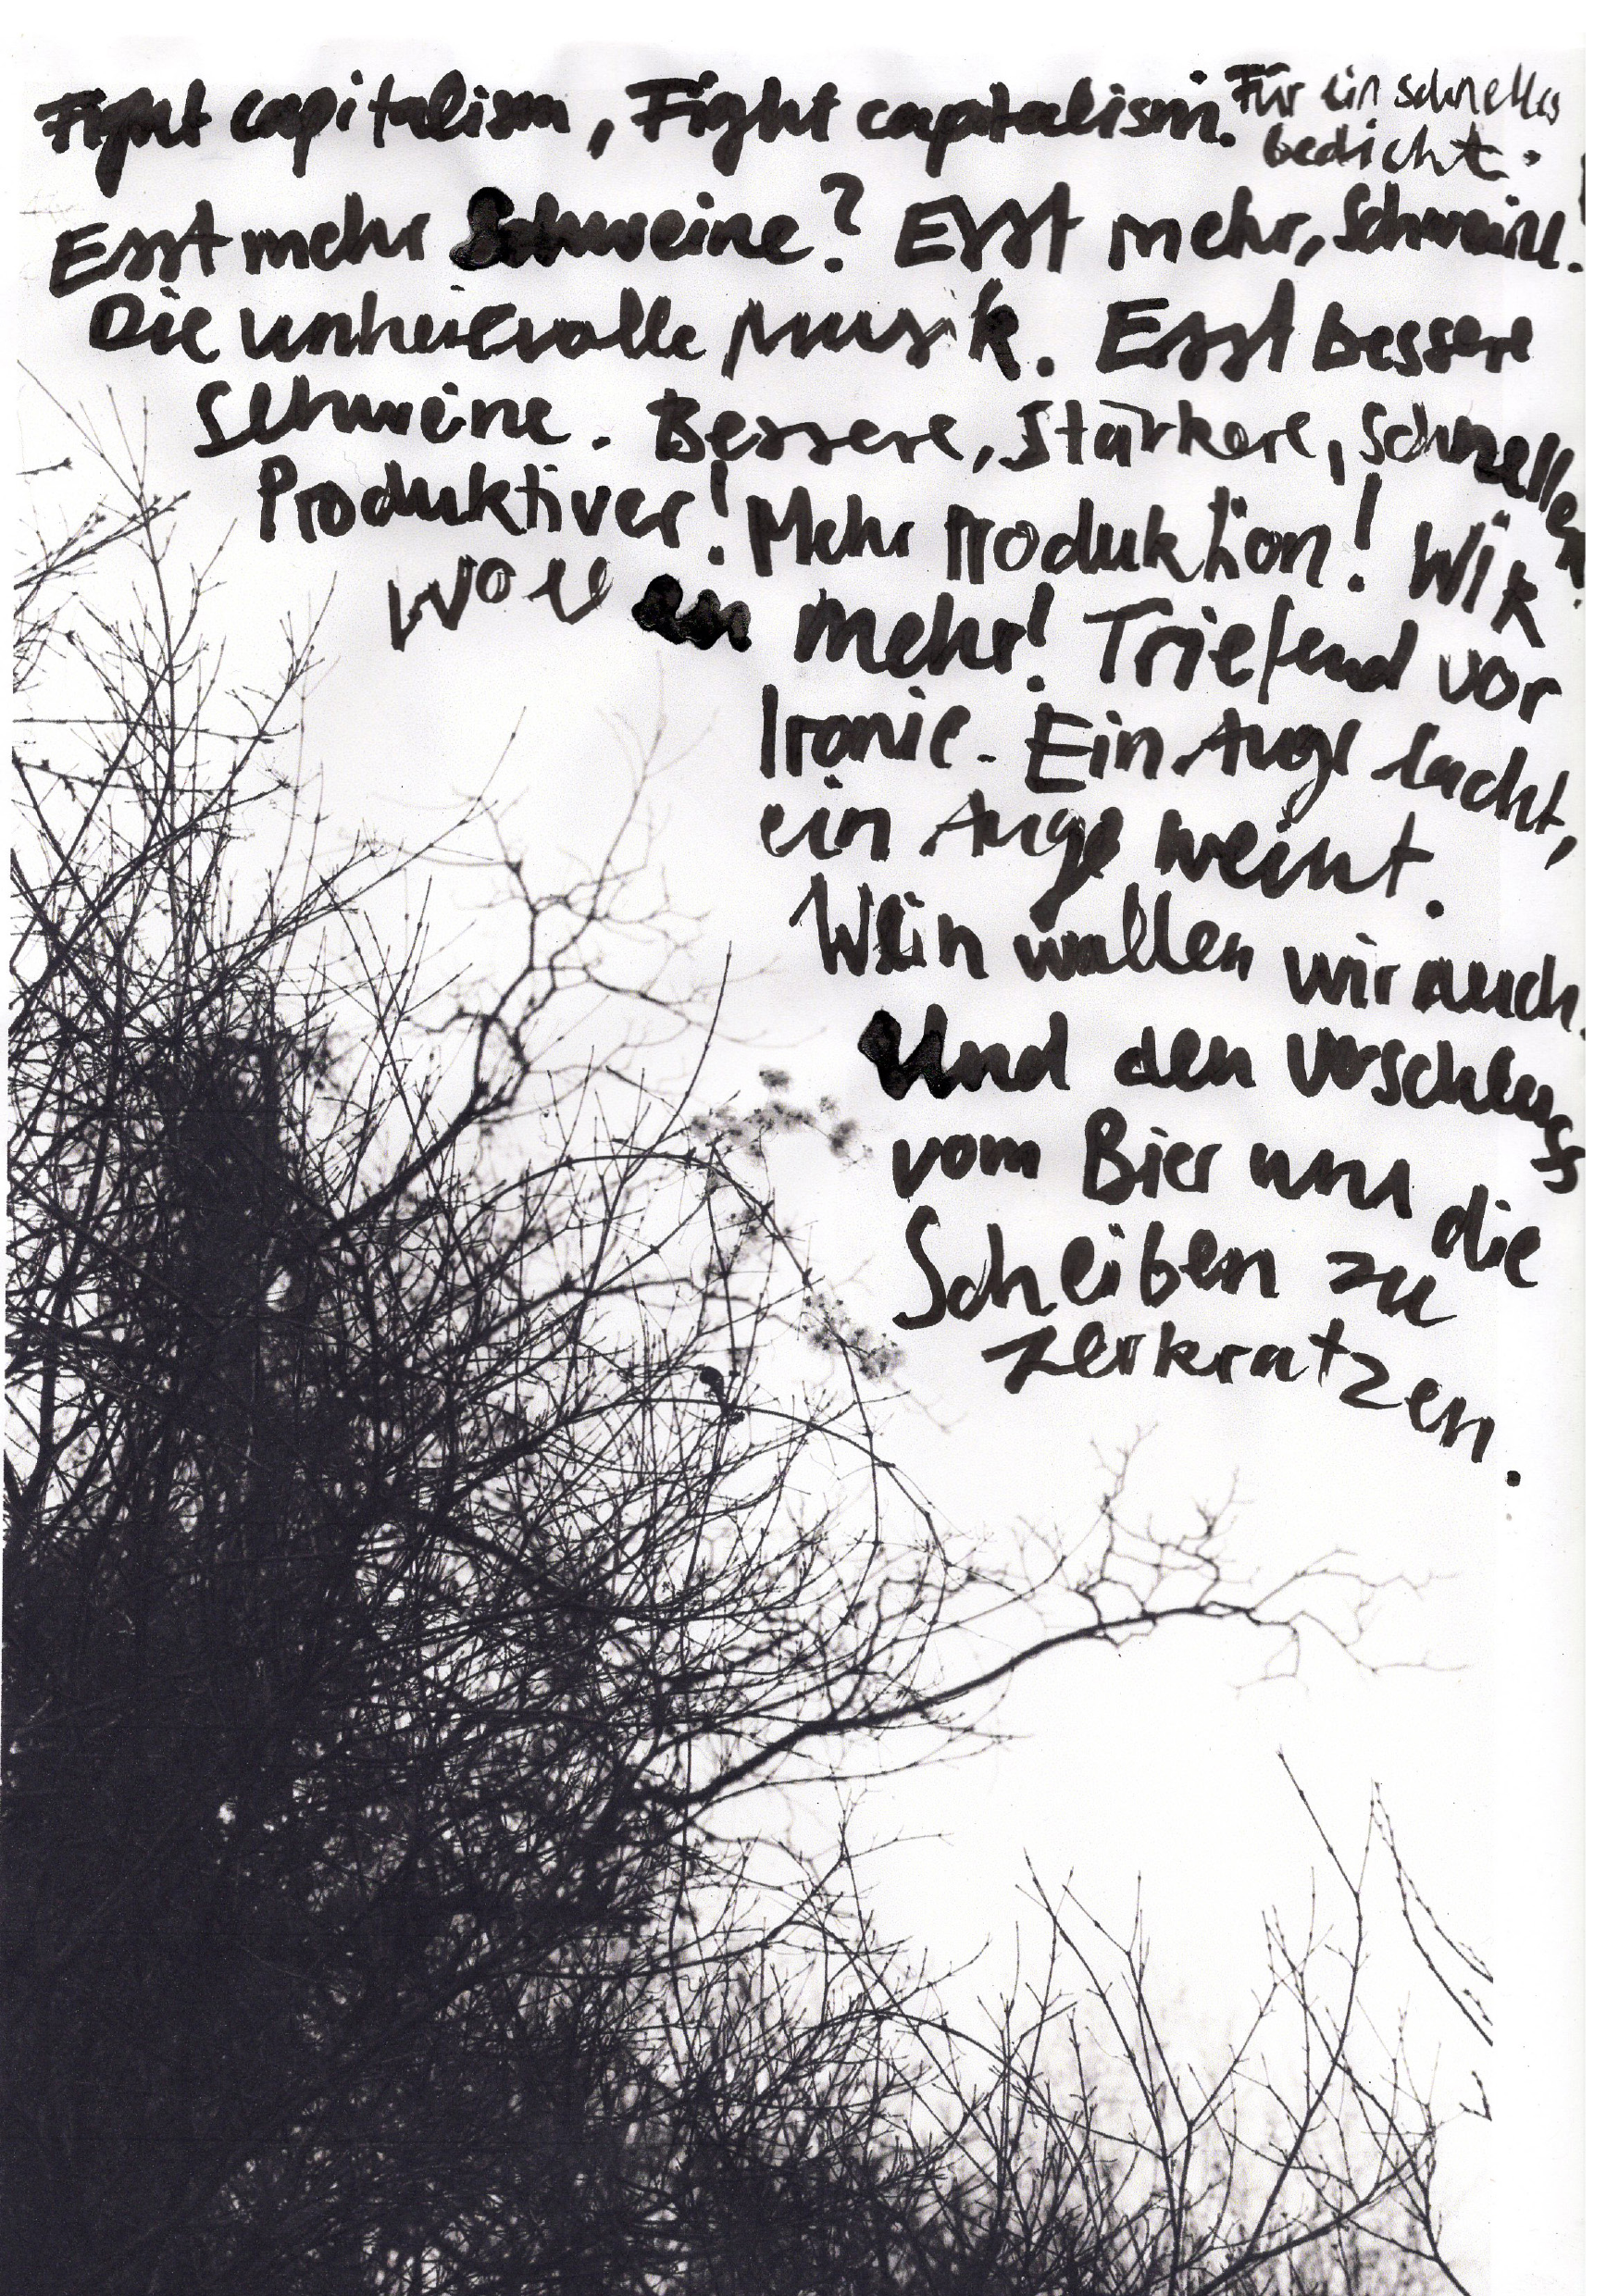 Fight capitalism, Fight capitalism. Für ein schnelles
bedicht.
Esst mehr Schweine? Esst mehr, Schweine!
Die unheilvolle Musik. Esst bessere
Schweine. Bessere, Stärkere, Schnellere.
Produktiver! Mehr Produktion! Wir
wollen mehr! Triefend vor
Ironie. Ein Auge lacht,
ein Auge weint.
Wein wollen wir auch.
Und den Verschluss
vom Bier um die
Scheiben zu
zerkratzen.